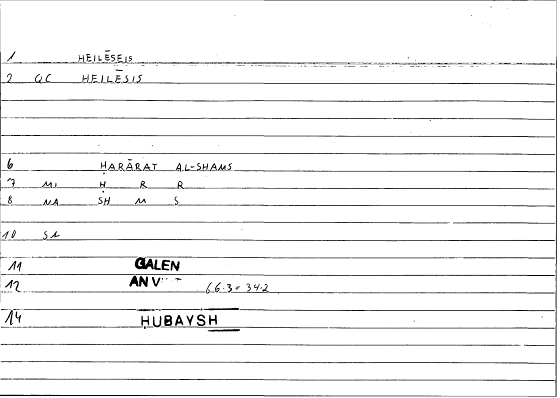 1 HEILĒSEIS
2 QC HEILĒSIS
6 ḤARĀRAT AL-SHAMS
7 MI Ḥ R R
8 NA SH M S
10 SA
11 GALEN
12 ANV 66.3 = 34.2
14 ḤUBAYSH